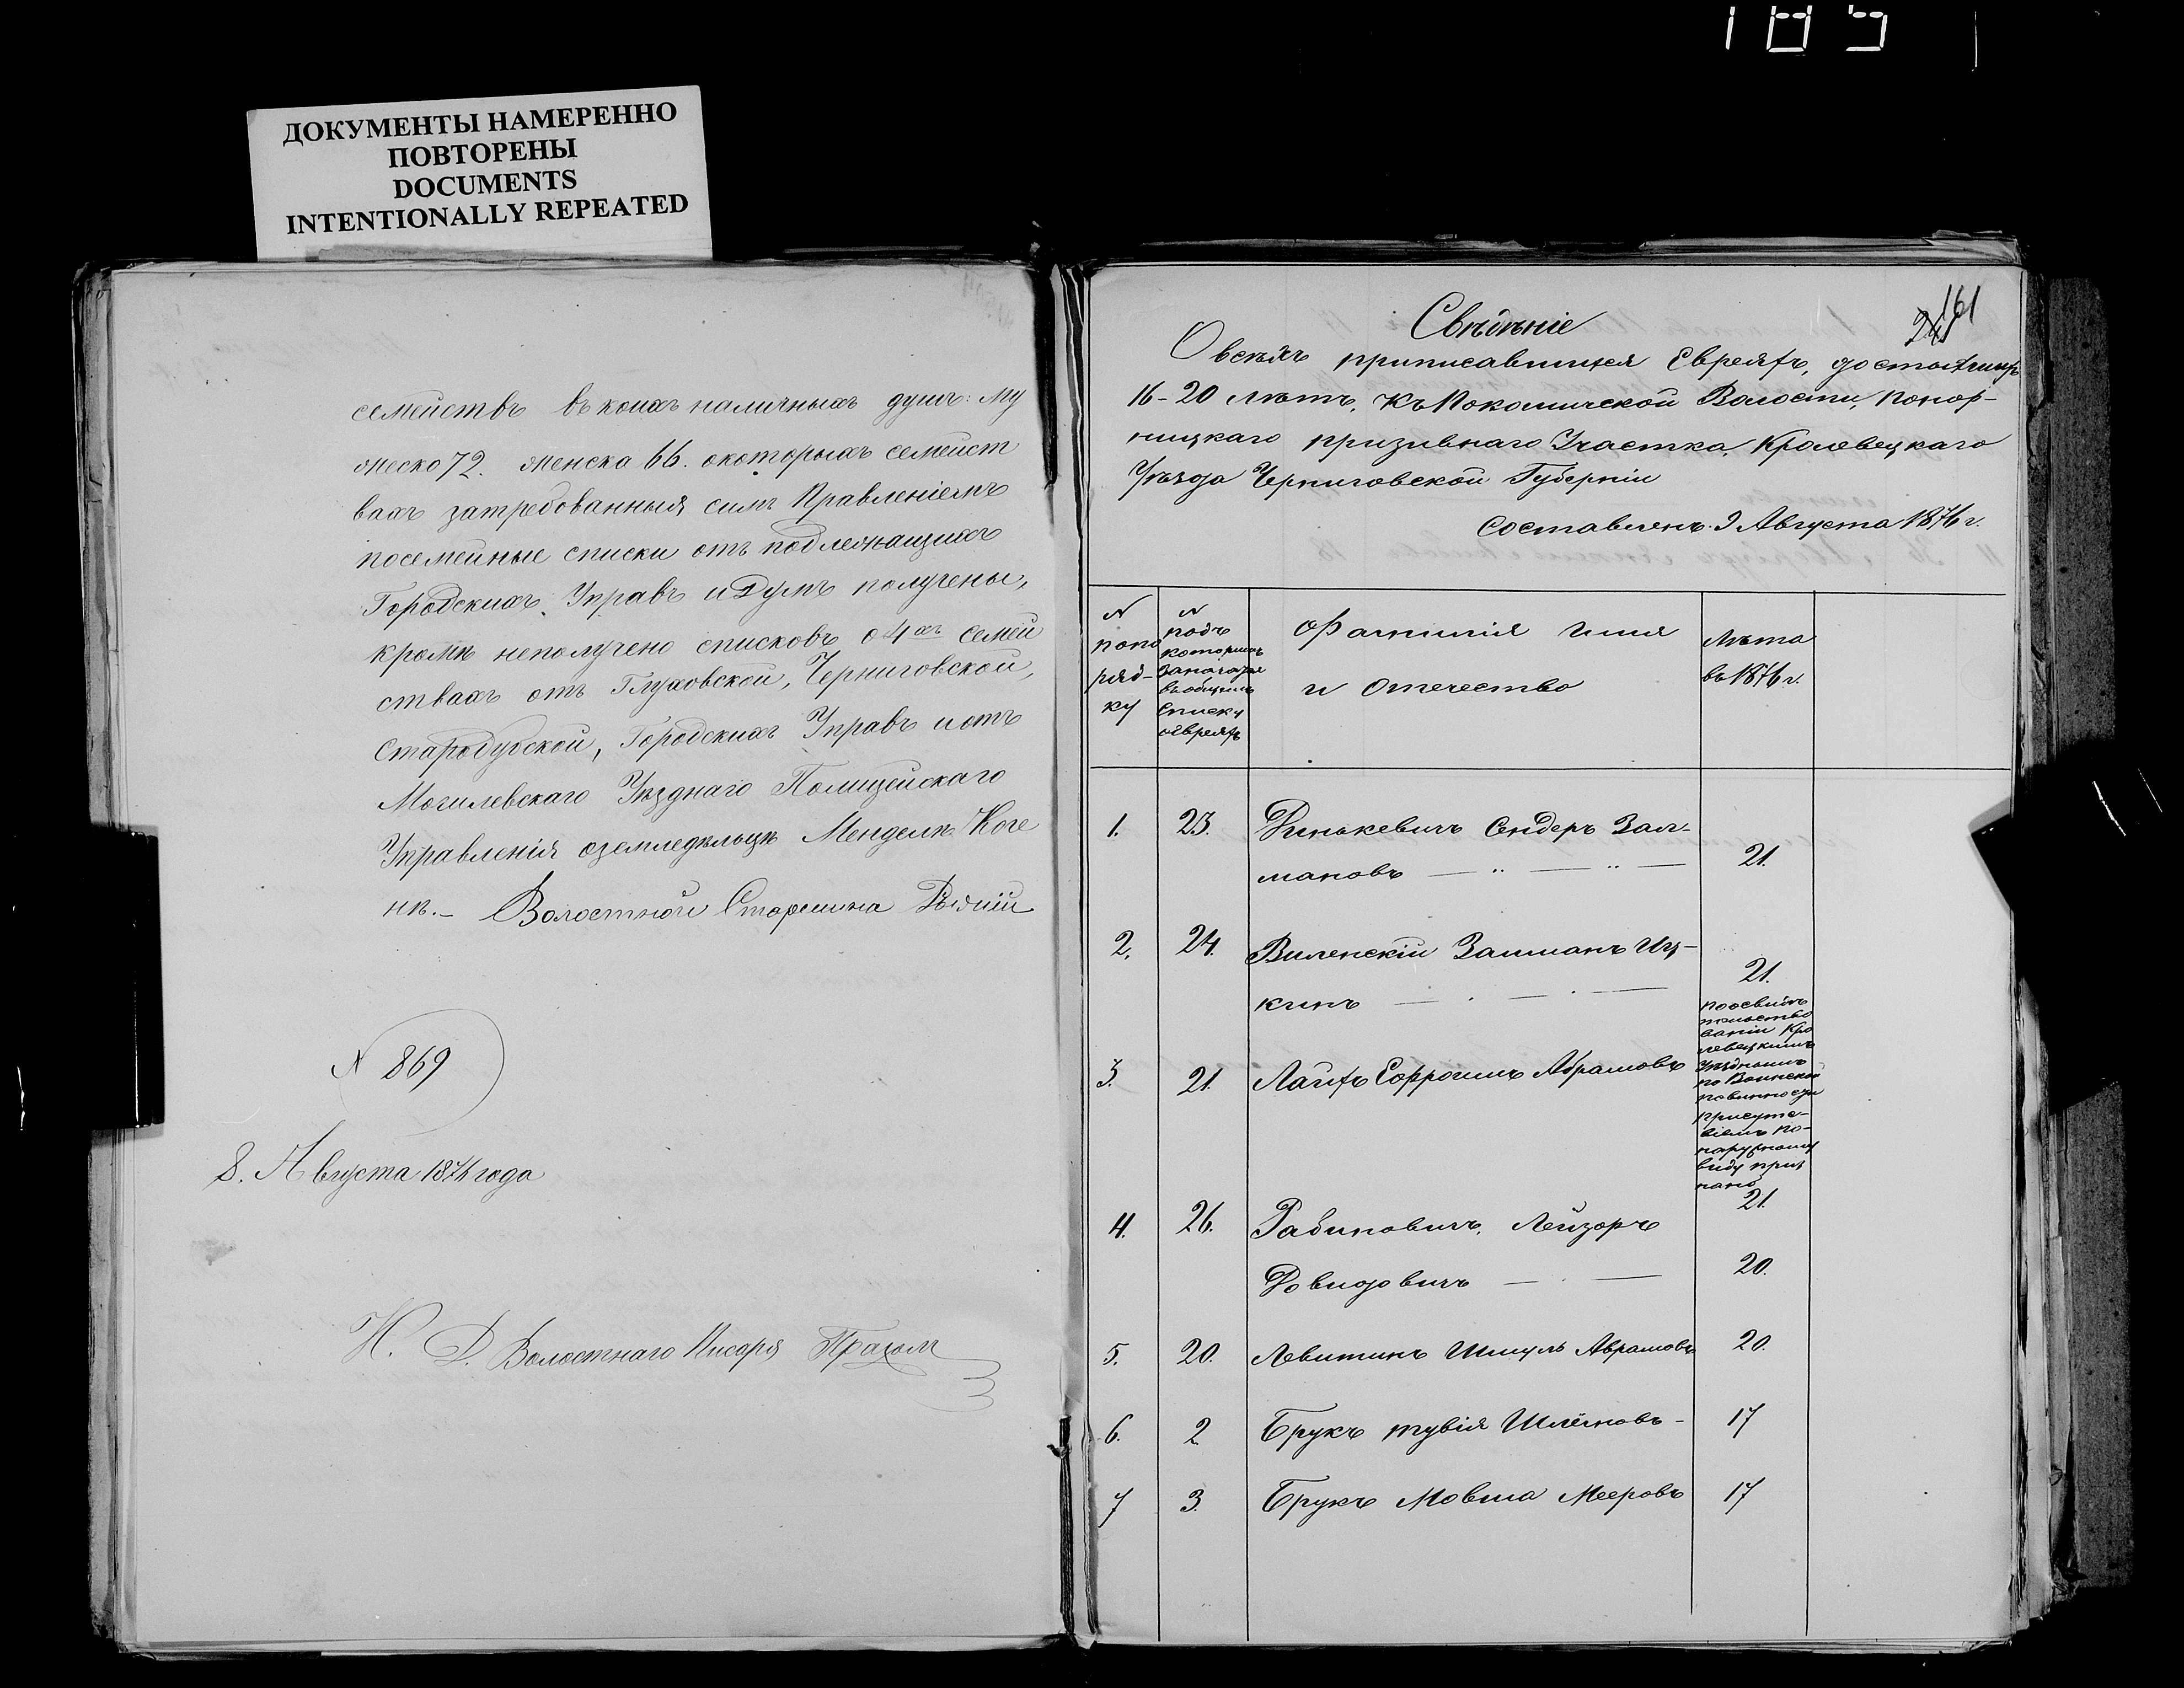 185
ДОКУМЕНТЫ НАМЕРЕННО
ПОВТОРЕНЫ
DOCUMENTS
INTENTIONALLY REPEATED
семействъ въ коихъ наличныхъ душъ: му
жеско 72. женска 66. о которыхъ семейст
вахъ затребованныя симъ Правленіемъ
посемейные списки отъ подлежащихъ
Городскихъ Управъ и Думъ получены,
кромѣ неполучено списковъ о 4хъ семей
ствахъ отъ Глуховской, Черниговской,
Стародубской, Городскихъ Управъ и отъ
Могилевскаго Уѣзднаго Полицейскаго
Управленія о земледѣльцѣ Менделѣ Коге
нѣ. – Волостной Старшина
N 869
8. Августа 1876 года
И. Д. Волостнаго Писаря
161
Свѣдѣніе
О всѣхъ приписавшихся Евреяхъ, достигшихъ
16-20 лѣтъ, къ Покошичской Волости, Понор-
ницкаго призывнаго Участка, Кролевецкаго
Уѣзда Черниговской Губерніи
Составленъ 9 Августа 1876 г.
N попо ряд- ку
N подъ которымъ значатся въ общемъ списку о евреяхъ
Фамилія Имя и Отечество
Лѣта въ 1876 г.
1. 23. Динькевичъ Сендеръ Зал-
мановъ — „ — „ — 21.
2. 24. Виленскій Залманъ Иц-
кинъ — . — . — 21.
3. 21. Лаихъ Ефроимъ Абрамовъ
по освидѣ
тельство
ваніи Кро
левецкимъ
Уѣзднымъ
по Воинской
повинности
присутс-
віемъ по-
наружному
виду приз
нано
21.
4. 26. Рабиновичъ, Лейзоръ
Довидовичъ — . — 20.
5. 20. Левитинъ Шмуль Аврамовъ 20.
6. 2 Брукъ Тувія Шлёмовъ - 17
7 3. Брукъ Мовша Мееровъ 17